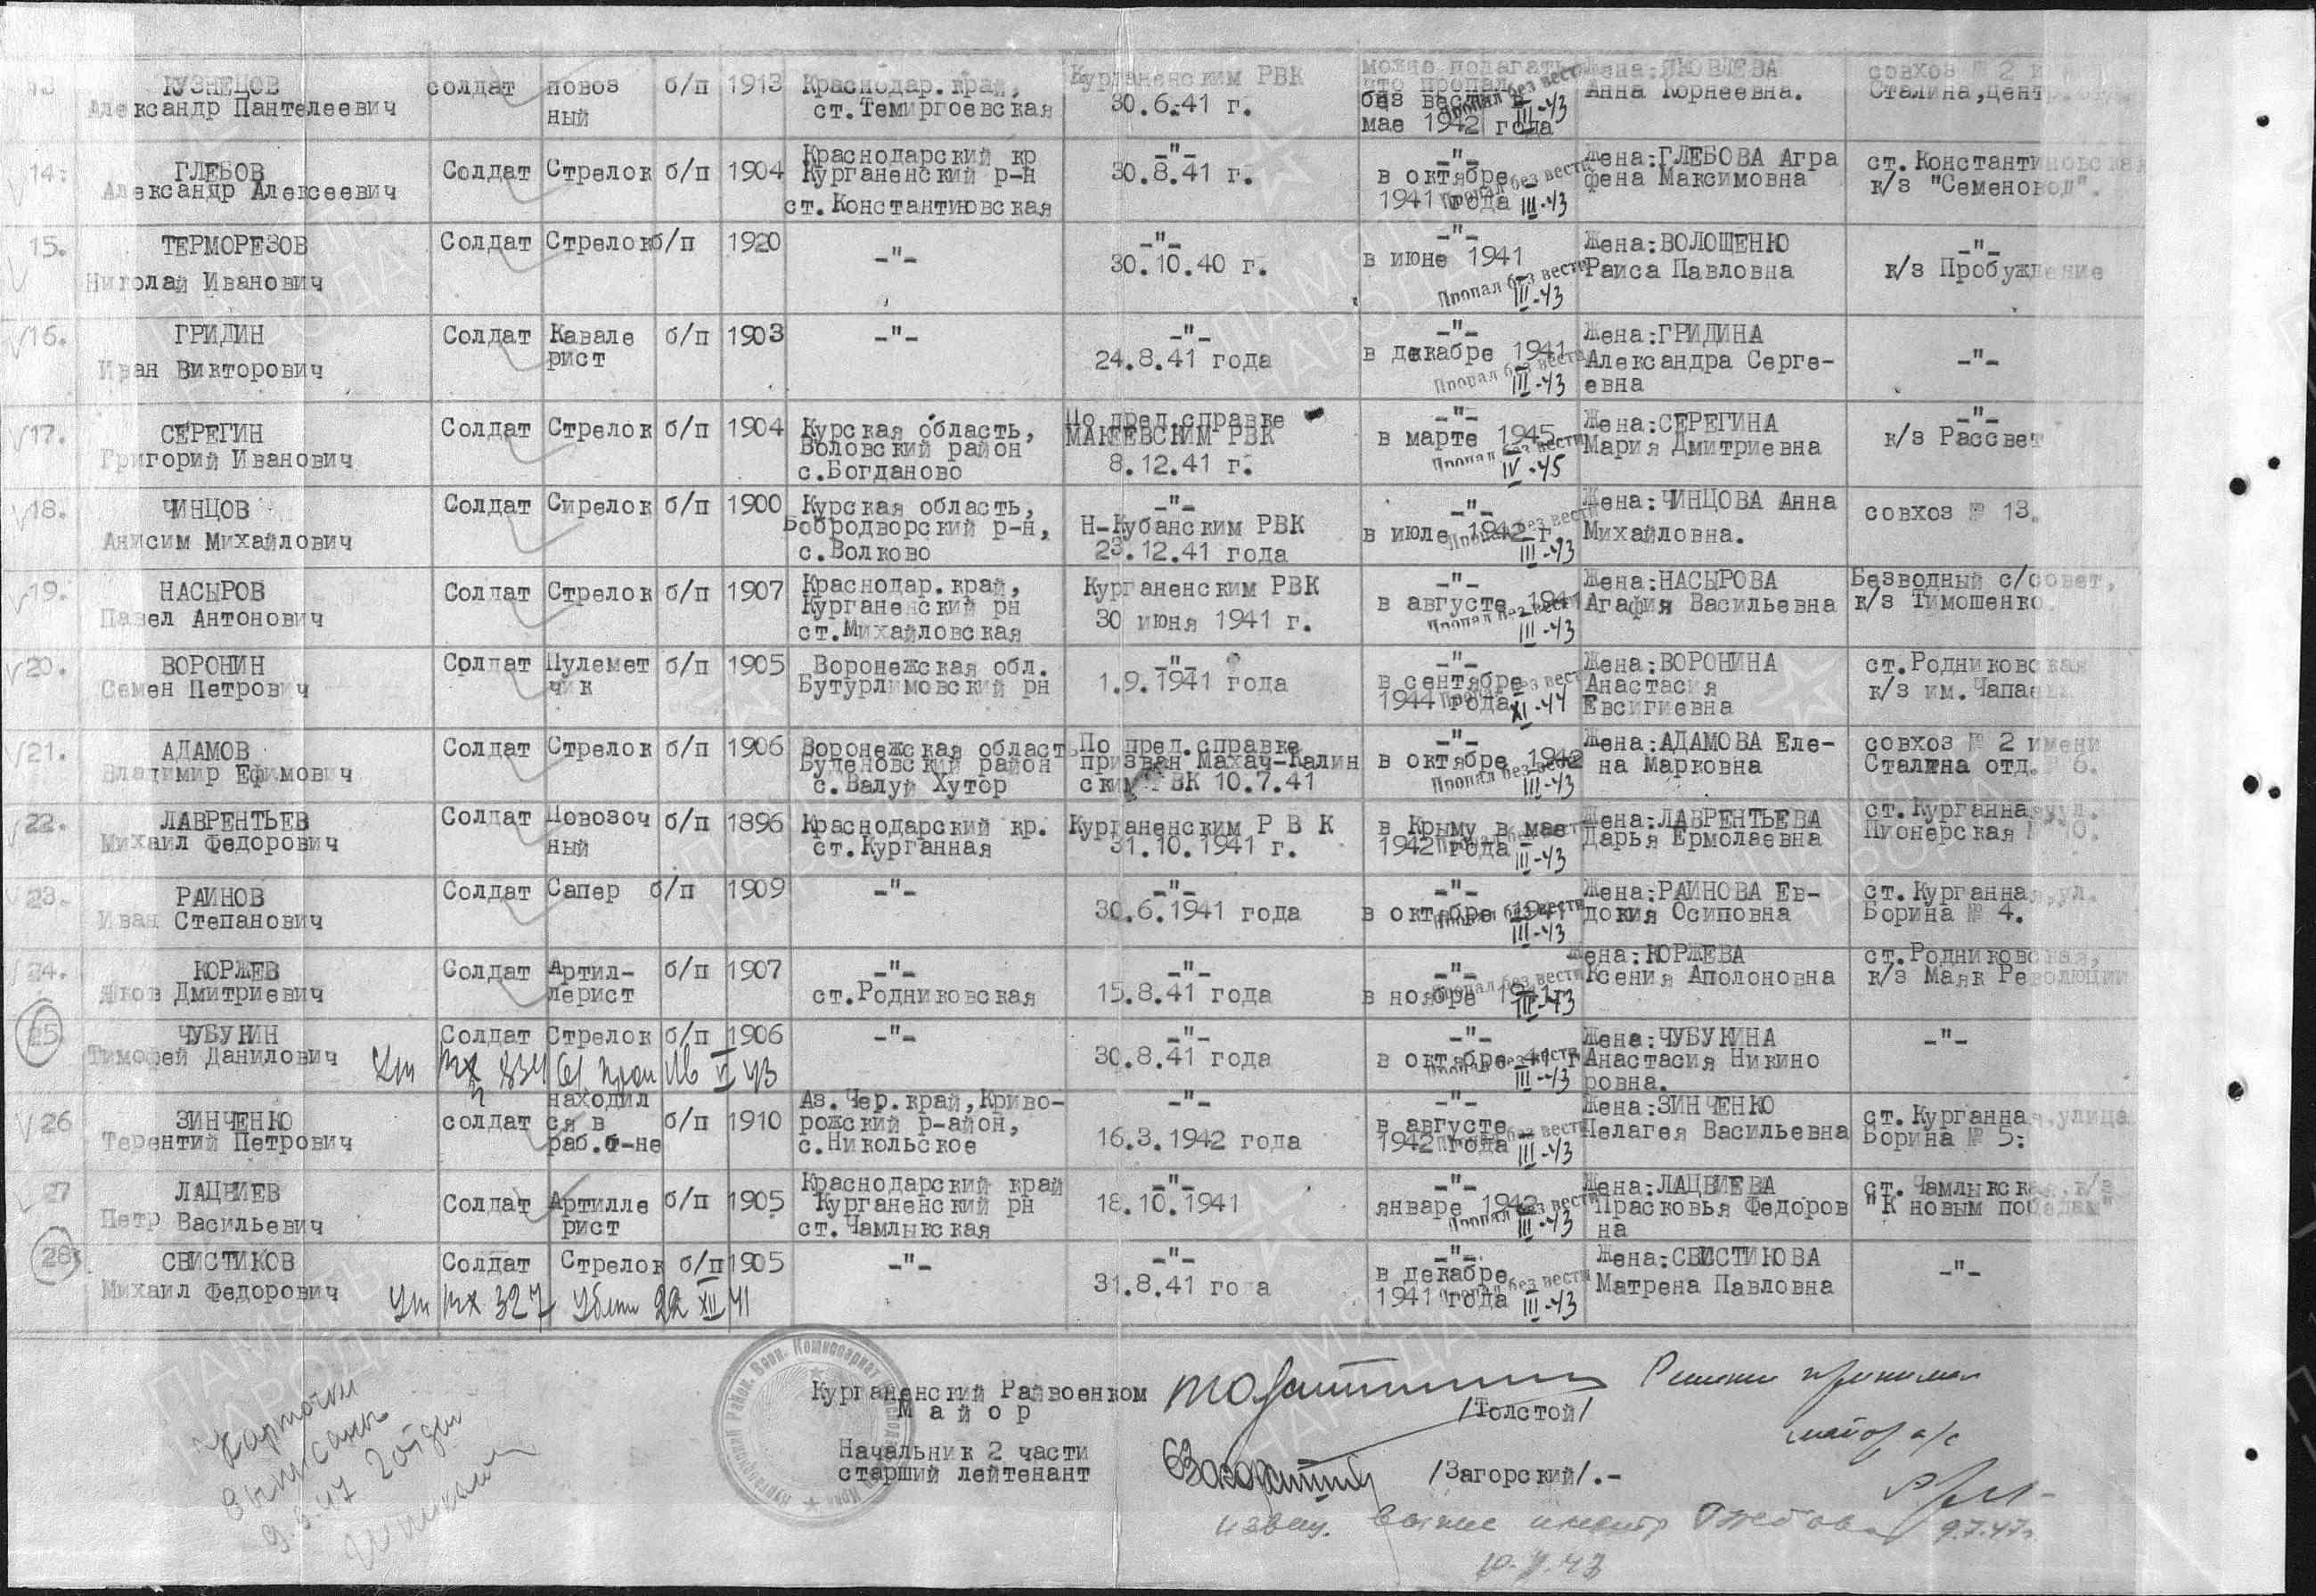 КУЗНЕЦОВ Александр Пантелеевич солдат повоз ный б/п 1913 Краснодар.край, ст.Темиргоевская Курганенским РВК 30.6.41 г. можно полагать что пропал без вести в мае 1942 года Пропал без вести III-43 Жена:ЯКОВЛЕВА Анна Корнеевна. совхоз № 2 Сталина,
14. ГЛЕБОВ Александр Алексеевич Солдат Стрелок б/п 1904 Краснодарский кр Курганенский р-н ст.Константиновская -"- 30.8.41 г. -"- в октябре 1941 года Пропал без вести III-43 Жена:ГЛЕБОВА Агра фена Максимовна ст.Константиновская к/з "Семеновод".
15. ТЕРМОРЕЗОВ Николай Иванович Солдат Стрелок б/п 1920 -"- -"- 30.10.40 г. -"- в июне 1941 Пропал без вести III-43 Жена:ВОЛОШЕНКО Раиса Павловна -"- к/з Пробуждение
16. ГРИДИН Иван Викторович Солдат Кавале рист б/п 1903 -"- -"- 24.8.41 года -"- в декабре 1941 Пропал без вести III-43 Жена:ГРИДИНА Александра Серге- евна -"-
17. СЕРЕГИН Григорий Иванович Солдат Стрелок б/п 1904 Курская область, Воловский район с.Богданово По пред.справке МАКЕЕВСКИМ РВК 8.12.41 г. -"- в марте 1945 Пропал без вести IV-45 Жена:СЕРЕГИНА Мария Дмитриевна -"- к/з Рассвет
18. ЧИНЦОВ Анисим Михайлович Солдат Сирелок б/п 1900 Курская область, Бобродворский р-н, с.Волково -"- Н-Кубанским РВК 23.12.41 года -"- в июле 1942 г. Пропал без вести III-43 Жена:ЧИНЦОВА Анна Михайловна. совхоз № 13.
19. НАСЫРОВ Павел Антонович Солдат Стрелок б/п 1907 Краснодар.край, Курганенский рн ст.Михайловская Курганенским РВК 30 июня 1941 г. -"- в августе 1941 Пропал без вести III-43 Жена:НАСЫРОВА Агафия Васильевна Безводный с/совет, к/з Тимошенко.
20. ВОРОНИН Семен Петрович Солдат Пулемет чик б/п 1905 Воронежская обл. Бутурлимовский рн -"- 1.9.1941 года -"- в сентябре 1944 года Пропал без вести XI-44 Жена:ВОРОНИНА Анастасия Евсигиевна ст.Родниковская к/з им.Чапаева
21. АДАМОВ Владимир Ефимович Солдат Стрелок б/п 1906 Воронежская область Буденовский район с.Валуй Хутор По пред.справке призван Махач-Калин ским РВК 10.7.41 -"- в октябре 1942 Пропал без вести III-43 Жена:АДАМОВА Еле- на Марковна совхоз № 2 имени Сталина отд.№ 6.
22. ЛАВРЕНТЬЕВ Михаил Федорович Солдат Повозоч ный б/п 1896 Краснодарский кр. ст.Курганная Курганенским Р В К 31.10.1941 г. в Крыму в мае 1942 года Пропал без вести III-43 Жена:ЛАВРЕНТЬЕВА Дарья Ермолаевна ст.Курганная,ул. Пионерская
23. РАИНОВ Иван Степанович Солдат Сапер б/п 1909 -"- -"- 30.6.1941 года -"- в октябре 1941 Пропал без вести III-43 Жена:РАИНОВА Ев- докия Осиповна ст.Курганная,ул. Борина № 4.
24. КОРЖЕВ Яков Дмитриевич Солдат Артил- лерист б/п 1907 -"- ст.Родниковская -"- 15.8.41 года -"- в ноябре 1941г Пропал без вести III-43 Жена:КОРЖЕВА Ксения Аполоновна ст.Родниковская, к/з Маяк Революции
25. ЧУБУКИН Тимофей Данилович Солдат Стрелок б/п 1906 -"- -"- 30.8.41 года -"- в октябре 41 г Пропал без вести III-43 Жена:ЧУБУКИНА Анастасия Никино ровна. -"-
26 ЗИНЧЕНКО Терентий Петрович солдат находил ся в раб.б-не б/п 1910 Аз.Чер.край,Криво- рожский р-айон, с.Никольское -"- 16.3.1942 года -"- в августе 1942 года Пропал без вести III-43 Жена:ЗИНЧЕНКО Пелагея Васильевна ст.Курганная,улица Борина № 5.
27 ЛАЦВИЕВ Петр Васильевич Солдат Артилле рист б/п 1905 Краснодарский край Курганенский рн ст.Чамлыкская -"- 18.10.1941 -"- январе 1942 Пропал без вести III-43 Жена:ЛАЦВИЕВА Прасковья Федоров на ст.Чамлыкская,к/з "К новым победам"
28. СВИСТИКОВ Михаил Федорович Солдат Стрелок б/п 1905 -"- -"- 31.8.41 года -"- в декабре 1941 года Пропал без вести III-43 Жена:СВИСТИКОВА Матрена Павловна -"-
327 убит 22 XII 41
Курганенский Райвоенком
Майор /Толстой/
Начальник 2 части
старший лейтенант /Загорский/.-
Карточки
выписаны
9.7.47г.
ПАМЯТЬ НАРОДА